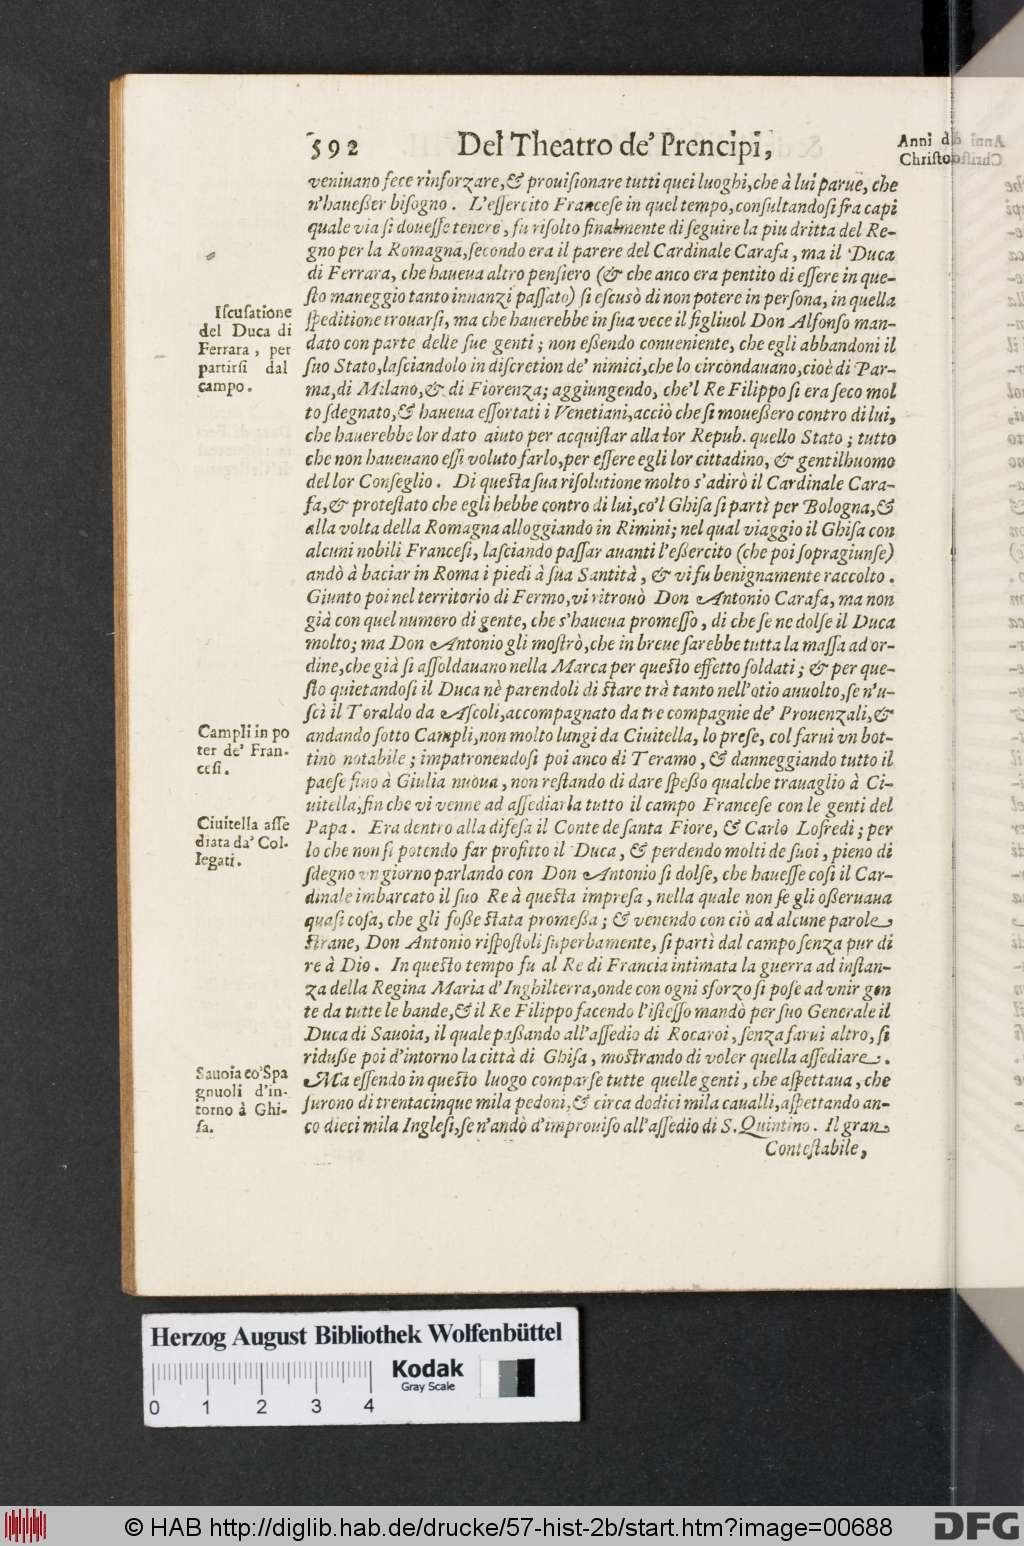 592 Del Theatro de' Prencipi,
Anni di
Christo
veniuano fece rinforzare, & prouiſionare tutti quei luoghi, che à lui parue, che
n'haueßer biſogno. L'eſſercito Franceſe in quel tempo, conſultandoſi fra capi
quale via ſi doueſſe tenere, fu riſolto finalmente di ſeguire la piu dritta del Re-
gno per la Romagna, ſecondo era il parere del Cardinale Carafa, ma il Duca
di Ferrara, che haueua altro penſiero (& che anco era pentito di eſſere in que-
ſto maneggio tanto innanzi paſſato) ſi eſcusò di non potere in perſona, in quella
ſpeditione trouarſi, ma che hauerebbe in ſua vece il figliuol Don Alfonſo man-
dato con parte delle ſue genti; non eßendo conueniente, che egli abbandoni il
ſuo Stato, laſciandolo in diſcretion de' nimici, che lo circondauano, cioè di Par-
ma, di Milano, & di Fiorenza; aggiungendo, che'l Re Filippo ſi era ſeco mol
to ſdegnato, & haueua eſſortati i Venetiani, acciò che ſi moueßero contro di lui,
che hauerebbe lor dato aiuto per acquiſtar alla lor Repub. quello Stato; tutto
che non haueuano eſſi voluto farlo, per eſſere egli lor cittadino, & gentilhuomo
del lor Conſeglio. Di queſta ſua riſolutione molto s'adirò il Cardinale Cara-
fa, & proteſtato che egli hebbe contro di lui, co'l Ghiſa ſi partì per Bologna, &
alla volta della Romagna alloggiando in Rimini; nel qual viaggio il Ghiſa con
alcuni nobili Franceſi, laſciando paſſar auanti l'eßercito (che poi ſopragiunſe)
andò à baciar in Roma i piedi à ſua Santità, & vi fu benignamente raccolto.
Giunto poi nel territorio di Fermo, vi ritrouò Don Antonio Carafa, ma non
già con quel numero di gente, che s'haueua promeſſo, di che ſe ne dolſe il Duca
molto; ma Don Antonio gli moſtrò, che in breue ſarebbe tutta la maſſa ad or-
dine, che già ſi aſſoldauano nella Marca per queſto effetto ſoldati; & per que-
ſto quietandoſi il Duca nè parendoli di ſtare trà tanto nell'otio auuolto, ſe n'u-
ſcì il Toraldo da Aſcoli, accompagnato da tre compagnie de' Prouenzali, &
andando ſotto Campli, non molto lungi da Ciuitella, lo preſe, col farui vn bot-
tino notabile; impatronendoſi poi anco di Teramo, & danneggiando tutto il
paeſe fino à Giulia nuoua, non reſtando di dare ſpeßo qualche trauaglio à Ci-
uitella, fin che vi venne ad aſſediarla tutto il campo Franceſe con le genti del
Papa. Era dentro alla difeſa il Conte de ſanta Fiore, & Carlo Lofredi; per
lo che non ſi potendo far profitto il Duca, & perdendo molti de ſuoi, pieno di
ſdegno vn giorno parlando con Don Antonio ſi dolſe, che haueſſe coſi il Car-
dinale imbarcato il ſuo Re à queſta impreſa, nella quale non ſe gli oßeruaua
quaſi coſa, che gli foße ſtata promeßa; & venendo con ciò ad alcune parole
ſtrane, Don Antonio riſpoſtoli ſuperbamente, ſi partì dal campo ſenza pur di
re à Dio. In queſto tempo fu al Re di Francia intimata la guerra ad inſtan-
za della Regina Maria d'Inghilterra, onde con ogni sforzo ſi poſe ad vnir gen
te da tutte le bande, & il Re Filippo facendo l'iſteſſo mandò per ſuo Generale il
Duca di Sauoia, il quale paßando all'aſſedio di Rocaroi, ſenza farui altro, ſi
riduße poi d'intorno la città di Ghiſa, moſtrando di voler quella aſſediare.
Ma eſſendo in queſto luogo comparſe tutte quelle genti, che aſpettaua, che
furono di trentacinque mila pedoni, & circa dodici mila caualli, aſpettando an-
co dieci mila Ingleſi, ſe n'andò d'improuiſo all'aſſedio di S. Quintino. Il gran
Conteſtabile,
Iſcuſatione
del Duca di
Ferrara, per
partirſi dal
campo.
Campli in po
ter de' Fran-
ceſi.
Ciuitella aſſe
diata da' Col-
legati.
Sauoia co' Spa
gnuoli d'in-
torno à Ghi-
ſa.
Herzog August Bibliothek Wolfenbüttel
Kodak
Gray Scale
0 1 2 3 4
© HAB http://diglib.hab.de/drucke/57-hist-2b/start.htm?image=00688
DFG